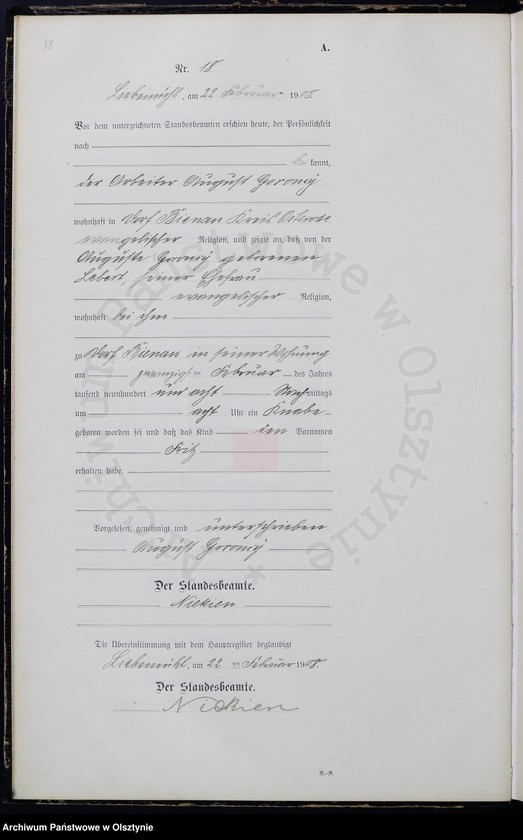 18
A.
Nr. 18
Liebemühl, am 22 Februar 1908.
Vor dem unterzeichneten Standesbeamten erschien heute, der Persönlichkeit
nach
be kannt,
der Arbeiter August Goronzÿ
wohnhaft in Dorf Bienau Kreis Osterode
evangelischer Religion, und zeigte an, daß von der
Auguste Goronzÿ geborenen
seiner Ehefrau
evangelischer Religion,
wohnhaft bei ihm
zu Dorf Bienau in seiner Wohnung
am zwanzigsten Februar des Jahres
tausend neunhundert und acht Nachmittags
um acht Uhr ein Knabe
geboren worden sei und daß das Kind den Vornamen
Fritz
erhalten habe.
Vorgelesen, genehmigt und unterschrieben
August Goronzÿ
Der Standesbeamte.
Niekien
Die Übereinstimmung mit dem Hauptregister beglaubigt
Liebemühl, am 22 ten Februar 1908.
Der Standesbeamte.
Niekien
Archiwum Państwowe w Olsztynie
Archiwum Państwowe w Olsztynie